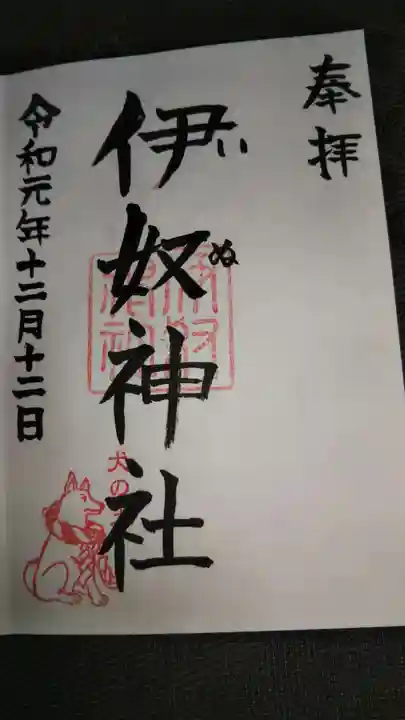 奉拝
伊奴神社
いぬ
令和元年十二月十二日
犬の